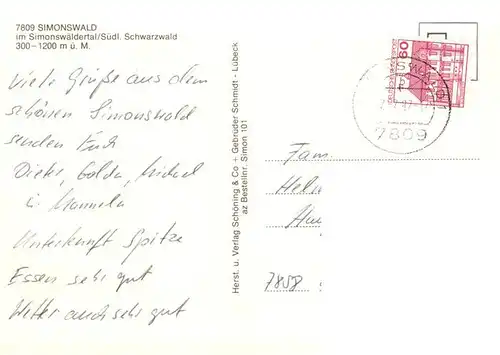 7809 SIMONSWALD
im Simonswäldertal/Südl. Schwarzwald
300–1200 m ü. M.
Viele Grüße aus dem
schönen Simonswald
senden Euch
Dieter, Golda, Michael
u. Manuela
Unterkunft Spitze
Essen sehr gut
Wetter auch sehr gut
Herst. u. Verlag Schöning & Co + Gebrüder Schmidt - Lübeck
az Bestellnr. Simon 101
60
DEUTSCHE BUNDESPOST
7809
Fam.
7858